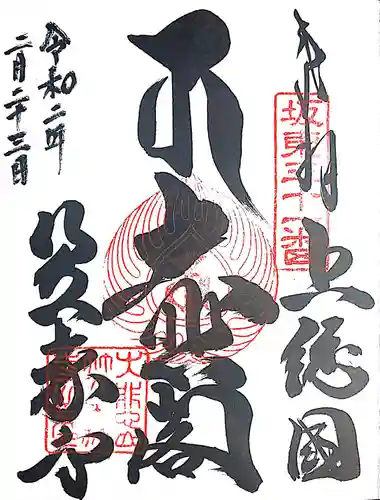 奉拝
上総國
坂東三十一番
大悲閣
笠森寺
令和二年
二月二十三日